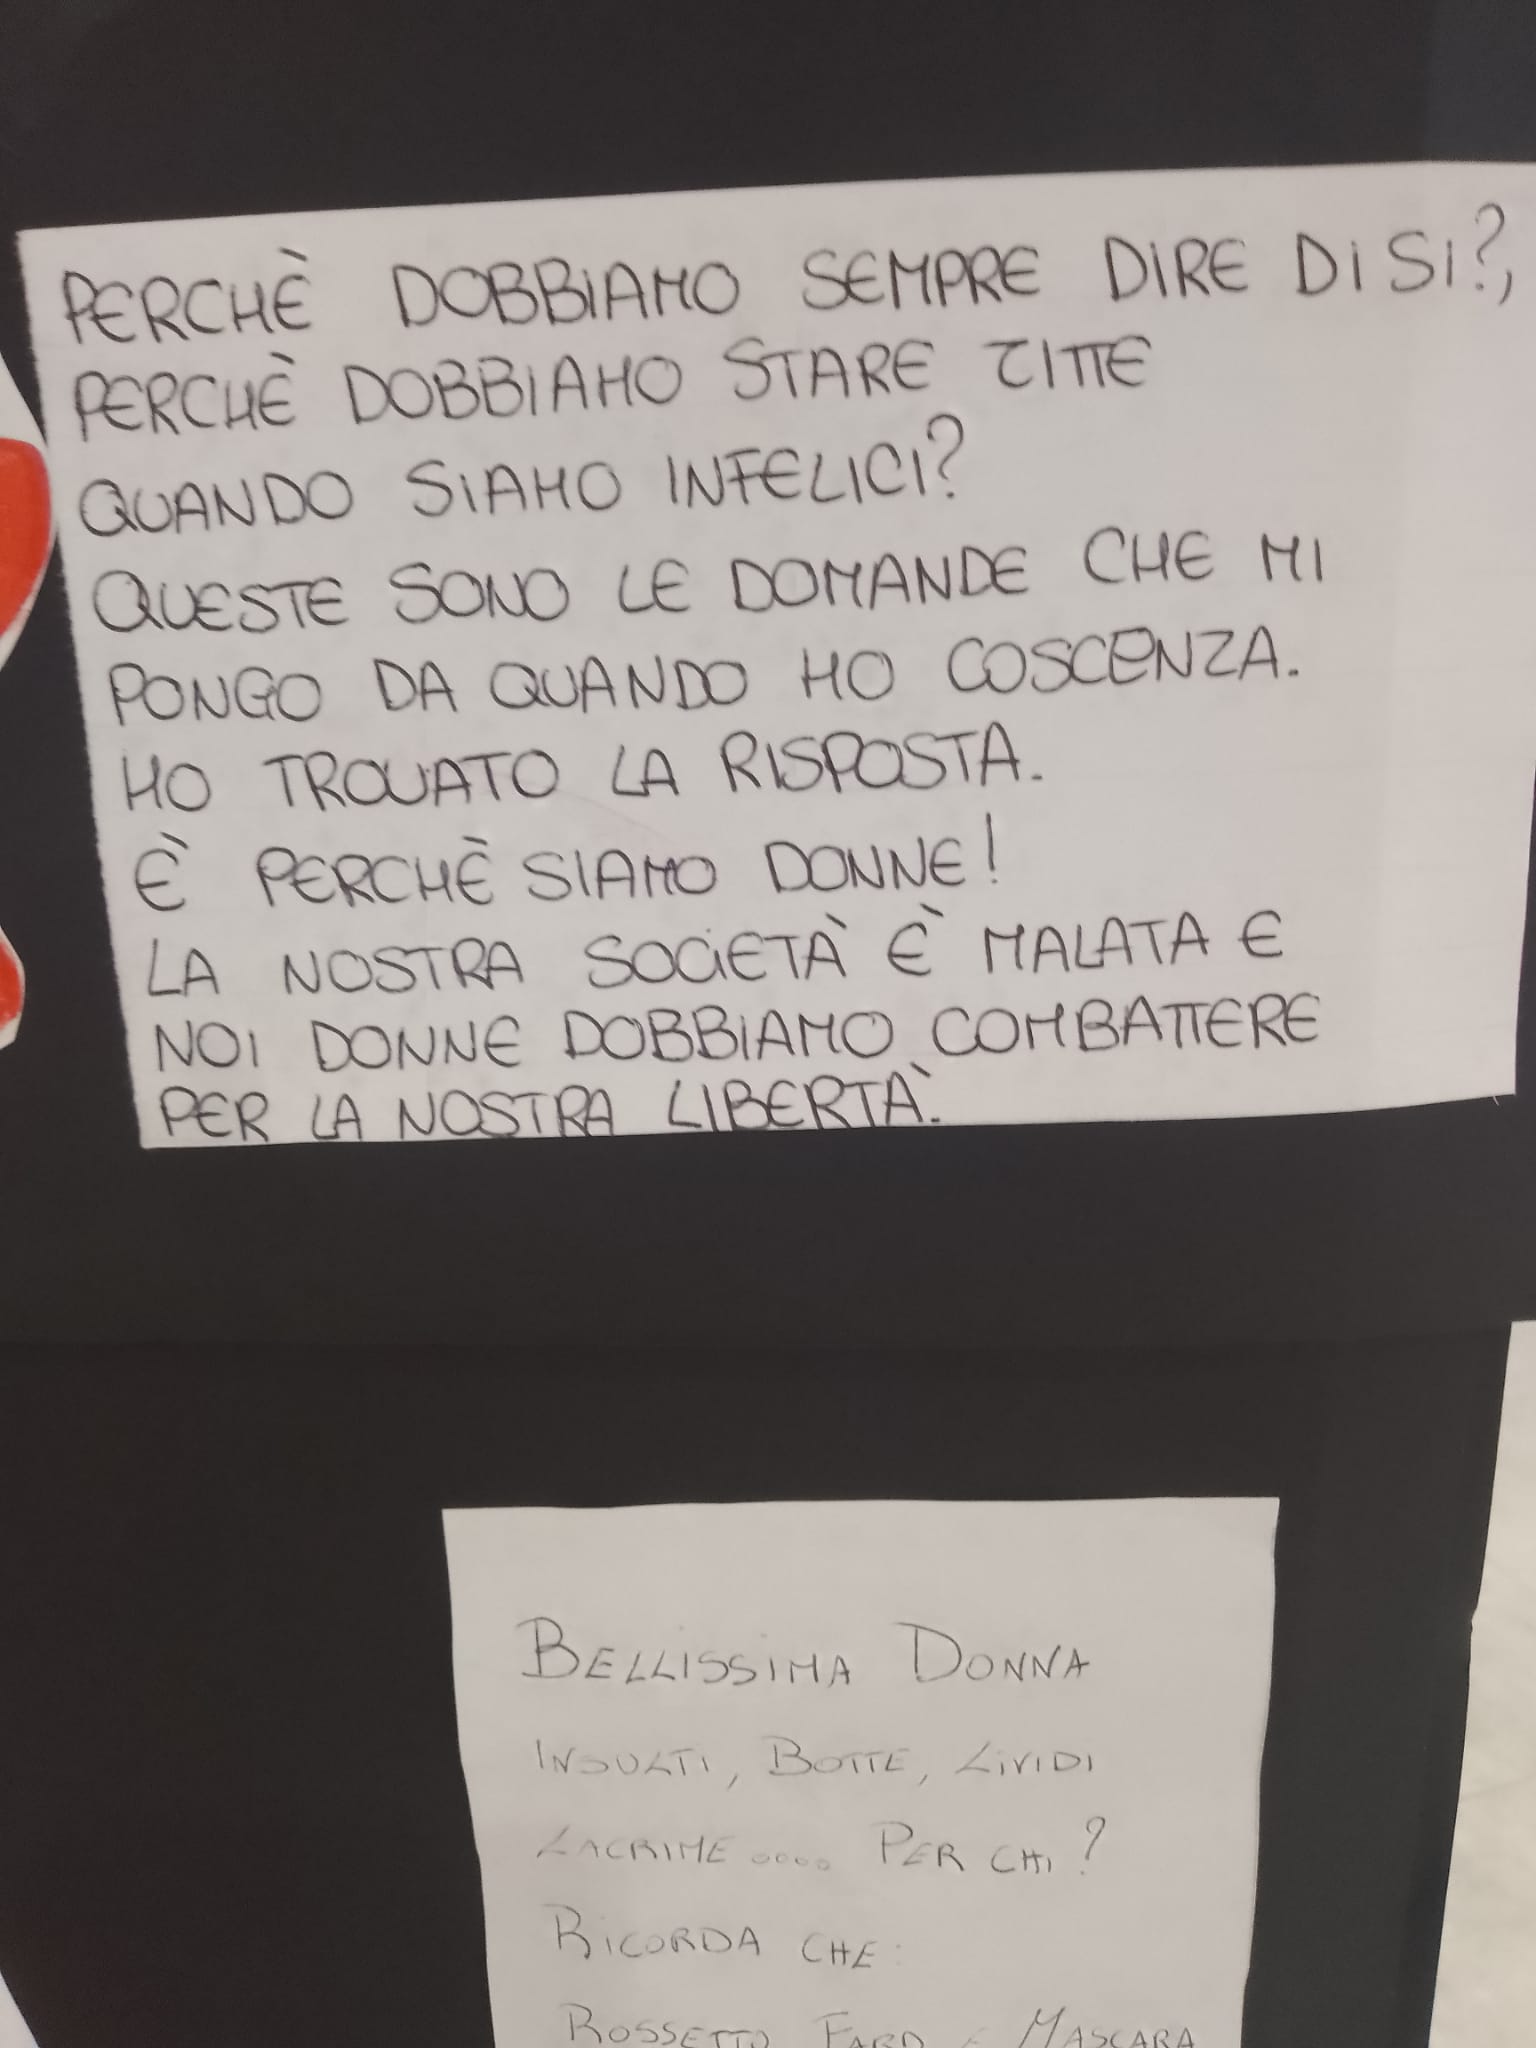 PERCHÈ DOBBIAMO SEMPRE DIRE DI SI?,
PERCHÈ DOBBIAMO STARE ZITTE
QUANDO SIAMO INFELICI?
QUESTE SONO LE DOMANDE CHE MI
PONGO DA QUANDO HO COSCENZA.
HO TROVATO LA RISPOSTA.
È PERCHÈ SIAMO DONNE!
LA NOSTRA SOCIETÀ È MALATA E
NOI DONNE DOBBIAMO COMBATTERE
PER LA NOSTRA LIBERTÀ.
BELLISSIMA DONNA
INSULTI, BOTTE, LIVIDI
LACRIME.... PER CHI?
RICORDA CHE:
ROSSETTO FARD E MASCARA